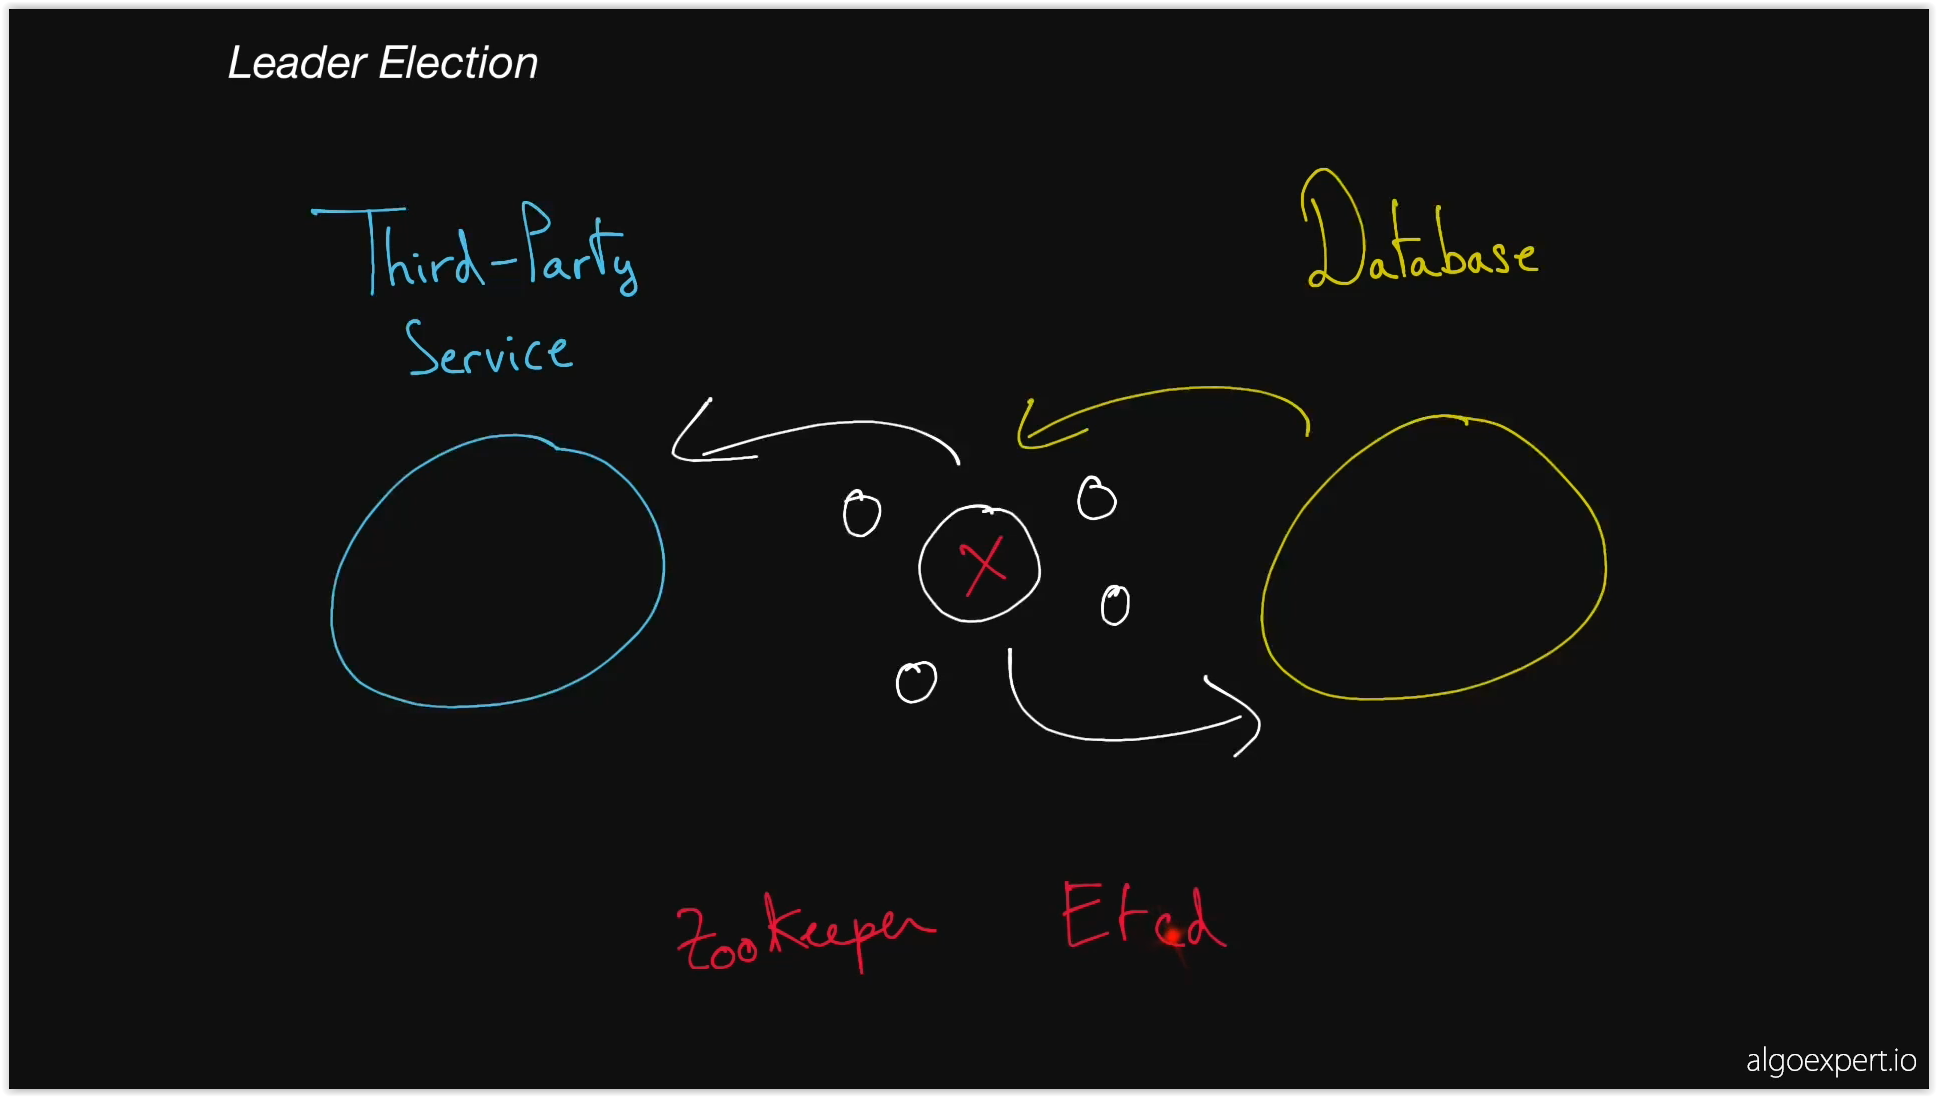 Leader Election
Third-Party
Service
Database
Zookeeper
Etcd
algoexpert.io